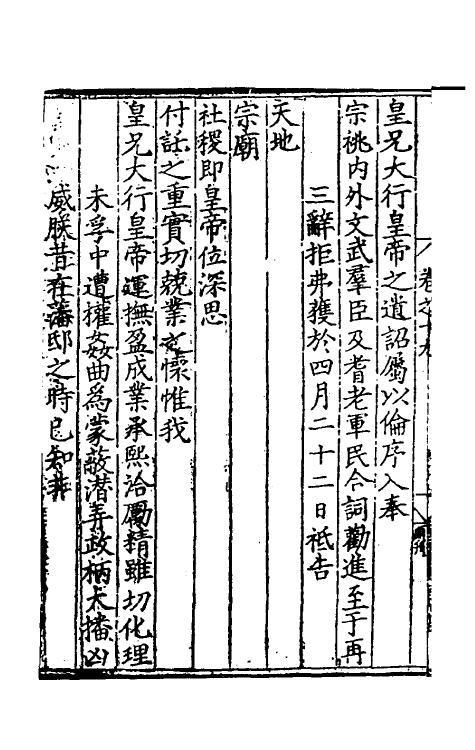 皇兄大行皇帝之遺詔屬以倫序入奉
宗祧內外文武羣臣及耆老軍民合詞勸進至于再
三辭拒弗獲於四月二十二日祗告
天地
宗廟
社稷即皇帝位深思
付託之重實切兢業之懷惟我
皇兄大行皇帝運撫盈成業承熙洽勵精雖切化理
未孚中遭權姦曲為蒙蔽潛弄政柄大播凶
威朕昔在藩邸之時已知非
卷之十九